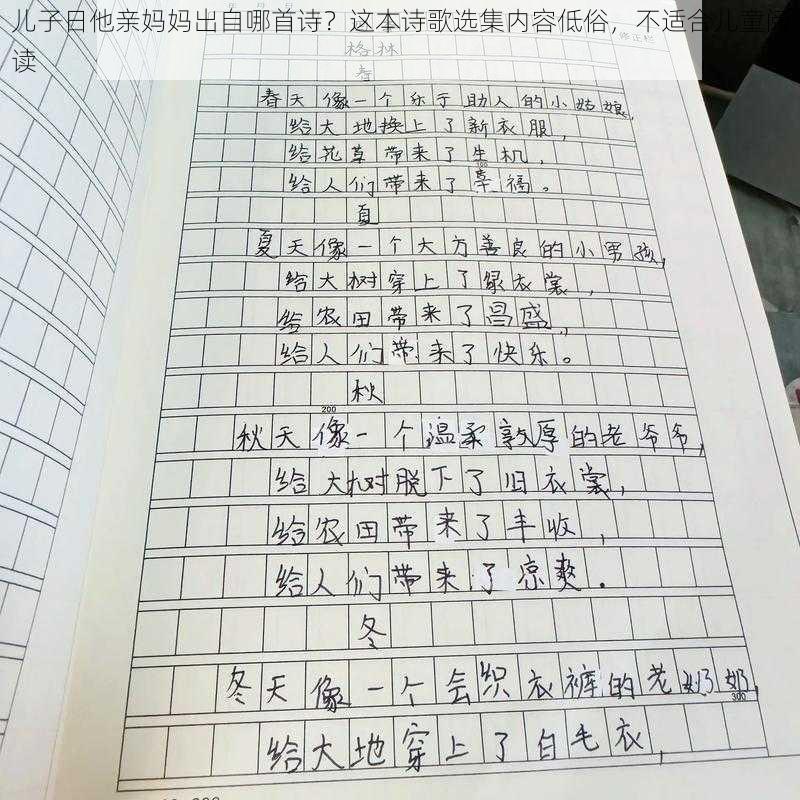 儿子日他亲妈妈出自哪首诗？这本诗歌选集内容低俗，不适合儿童阅
读
修正栏
格林
春
春天像一个乐于助人的小姑娘，
给大地换上了新衣服，
给花草带来了生机，
100
给人们带来了幸福。
夏
夏天像一个大方善良的小男孩，
给大树穿上了绿衣裳，
给农田带来了昌盛，
给人们带来了快乐。
秋
200
秋天像一个温柔敦厚的老爷爷，
给大树脱下了旧衣裳，
给农田带来了丰收，
给人们带来了凉爽。
冬
冬天像一个会织衣裤的老奶奶，
300
给大地穿上了白毛衣，